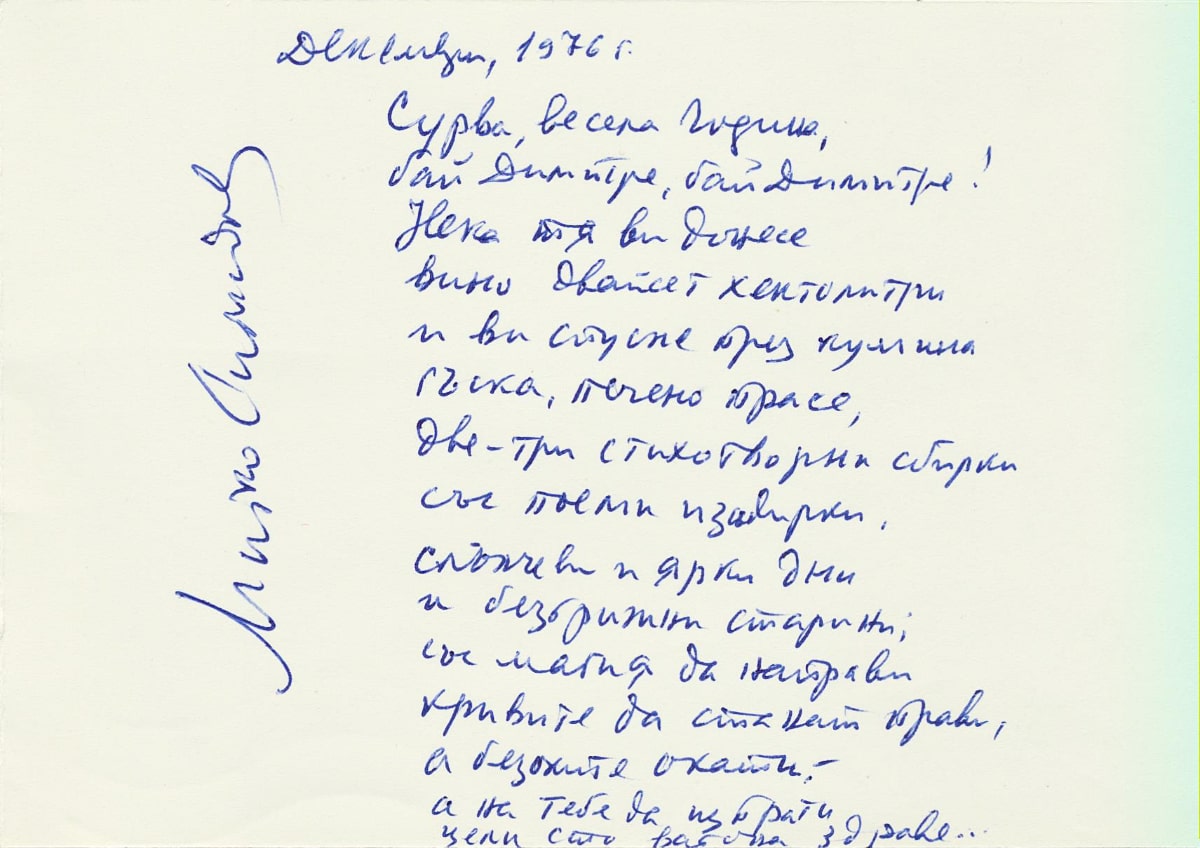 Декември, 1976 г.
Сурва, весела година,
бай Димитре, бай Димитре!
Нека тя ви донесе
вино двайсет хектолитри
и ви спусне през кумина
гъска, печено прасе,
две-три стихотворни сбирки
със поеми издирки,
слънчеви и ярки дни
и безгрижни старини;
със магия да направи
кривите да станат прави,
а безоките окати,-
а на тебе да изпрати
цели сто вагона здраве...